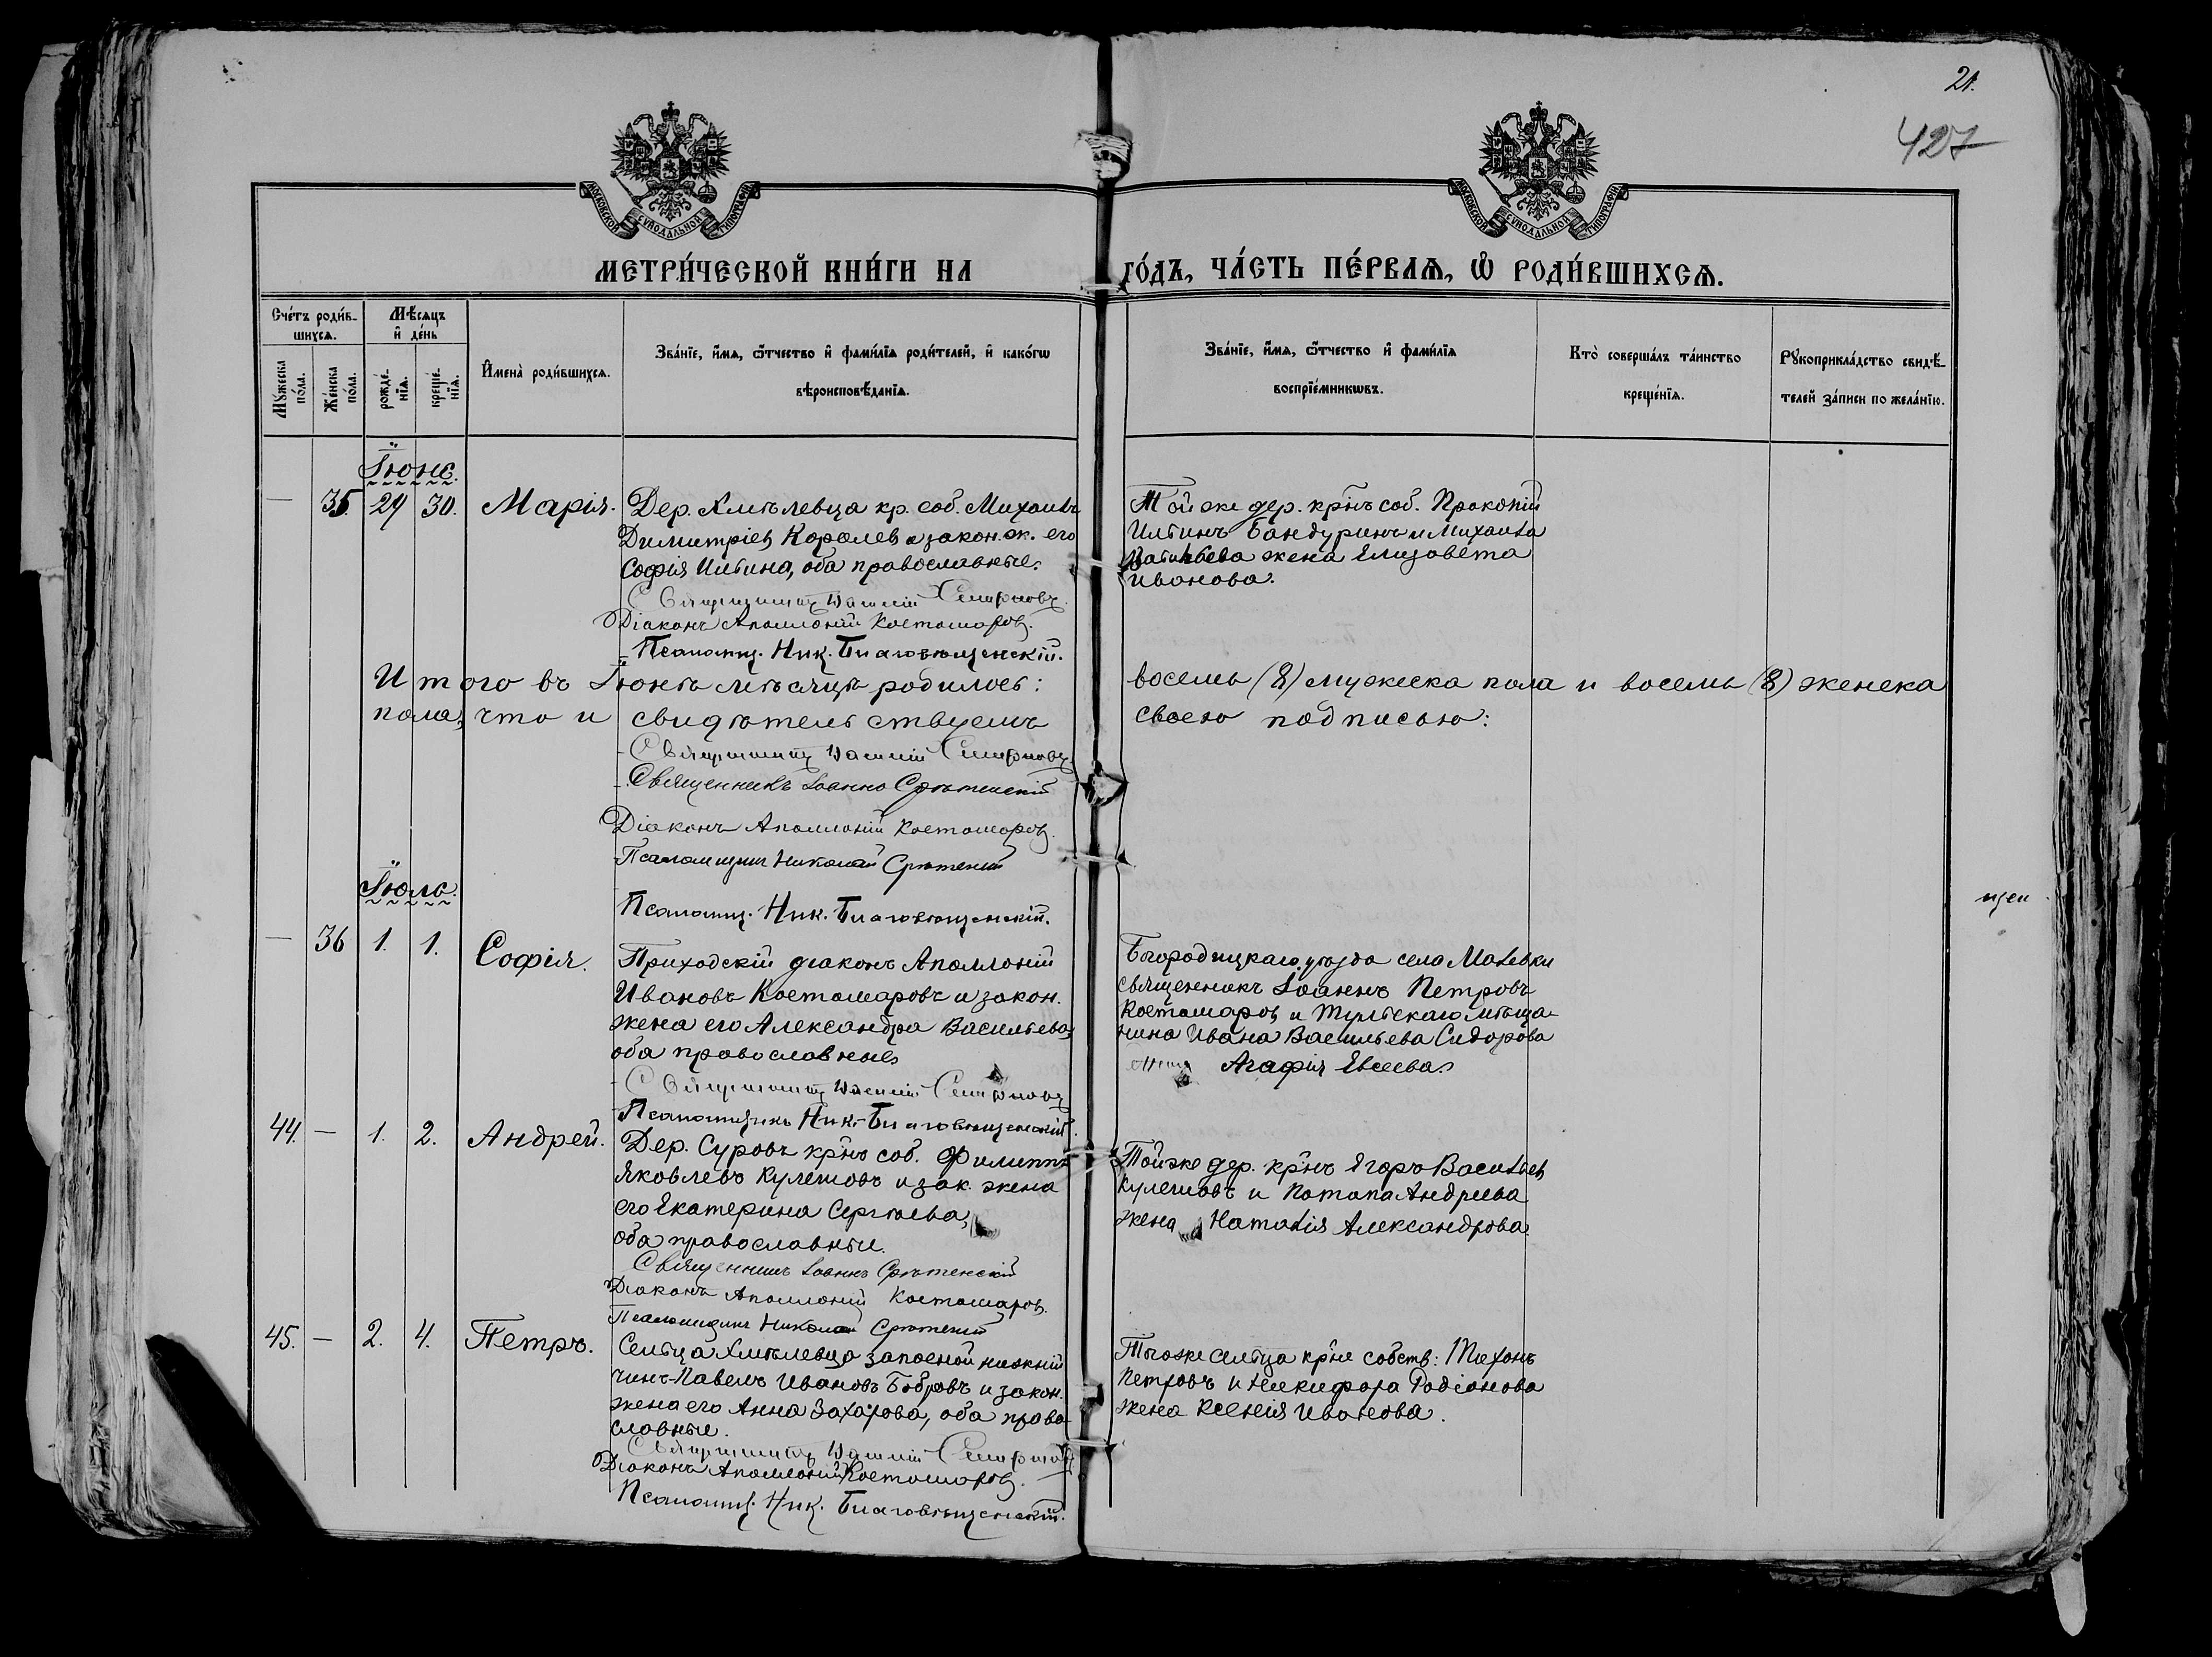 21.
427
МОСКОВСКОЙ СУНОДАЛЬНОЙ ТИПОГРАФІИ
МОСКОВСКОЙ СУНОДАЛЬНОЙ ТИПОГРАФІИ
МЕТРИ́ЧЕСКОЙ КНИ́ГИ НА
ГО́ДЪ, ЧА́СТЬ ПЕ́РВАѦ, Ѽ РОДИ́ВШИХСѦ.
Сче́тъ роди́в-
шихсѧ.
Мꙋ́жеска по́ла.
Же́нска по́ла.
Мѣ́сѧцъ
и҆ де́нь
рожде́-нїѧ.
креще́-нїѧ.
И҆мена̀ роди́вшихсѧ.
Зва́нїе, и҆́мѧ, ѻ҆́тчество и҆ фами́лїѧ роди́телей, и҆ како́гѡ
вѣроисповѣ́данїѧ.
Зва́нїе, и҆́мѧ, ѻ҆́тчество и҆ фами́лїѧ
воспрїе́мникѡвъ.
Кто̀ соверша́лъ та́инство
креще́нїѧ.
Рꙋкоприкла́дство свидѣ́-
телей за́писи по жела́нїю.
Іюнь.
— 35. 29 30. Марія.
Дер. Хмѣлевца кр. соб. Михаилъ
Димитріев Королев и закон. ж. его
Софія Ильина, оба православные.
Священникъ Василій Смирновъ
Діаконъ Аполлоній Костомаров.
Псаломщ. Ник. Благовѣщенскій.
Той же дер. кр͠нъ соб. Прокопій
Ильинъ Бандуринъ и Михаила
жена Елизавета
Иванова.
Итого въ Іюнѣ мѣсяцѣ родилось:
восемь (8) мужеска пола и восемь (8) женска
пола, что и свидѣтельствуемъ
своею подписью:
Священникъ Василій Смирновъ
Священникъ Іоаннъ Срѣтенскій
Діаконъ Аполлоній Костомаров.
Псаломщикъ Николай Срѣтенскій
Псаломщ. Ник. Благовѣщенскій.
Іюль.
щен
— 36 1. 1. Софія.
Приходскій діаконъ Аполлоній
Ивановъ Костомаровъ и закон.
жена его Александра Васильева,
оба православные
Священникъ Василій Смирновъ
Псаломщикъ Ник. Благовѣщенскій.
Богородицкаго уѣзда села Малевки
священникъ Іоаннъ Петровъ
Костомаров и Тульскаго мѣща-
нина Ивана Васильева Сидорова
жена Агафія Евсеева.
44. — 1. 2. Андрей.
Дер. Суровъ кр͠нъ соб. Филиппъ
Яковлевъ Кулешовъ и зак. жена
его Екатерина Сергѣева,
оба православные.
Священникъ Іоаннъ Срѣтенскій
Діаконъ Аполлоній Костомаров.
Псаломщикъ Николай Срѣтенскій
Той же дер. кр͠нъ Егоръ Васильев
Кулешовъ и Потапа Андреева
жена Наталія Александрова.
45. — 2. 4. Петръ.
Сельца Хмѣлевца запасной нижній
чинъ Павелъ Ивановъ Бобровъ и закон.
жена его Анна Захарова, оба право-
славные.
Священникъ Василій Смирновъ
Діаконъ Аполлоній Костомаров.
Псаломщ. Ник. Благовѣщенскій.
Того же сельца кр͠не собств: Тихонъ
Петровъ и Никифора Родіонова
жена Ксенія Иванова.